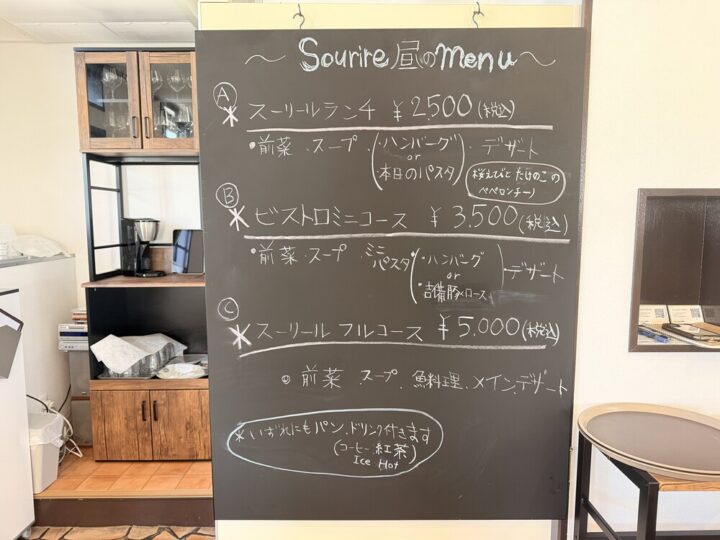 〜 Sourire 昼のMenu 〜
Ⓐ
* スーリールランチ ¥2,500(税込)
・前菜 . スープ . (・ハンバーグ or 本日のパスタ) . デザート
(桜えびとたけのこのペペロンチーノ)
Ⓑ
* ビストロミニコース ¥3,500(税込)
・前菜 . スープ . ミニパスタ . (・ハンバーグ or ・吉備豚ロース) . デザート
Ⓒ
* スーリールフルコース ¥5,000(税込)
◎ 前菜 . スープ . 魚料理 . メイン . デザート
* いずれにもパン、ドリンク付きます
(コーヒー 紅茶)
Ice Hot